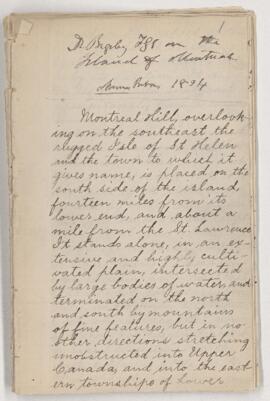 1
Dr Bigsby FGS on the
Island of Montreal
1824
Montreal Hill, overlook-
ing on the southeast the
rugged Isle of St Helen
and the town to which it
gives name, is placed on the
south side of the island,
fourteen miles from its
lower end, and about a
mile from the St. Lawrence
It stands alone, in an ex-
tensive and highly culti-
vated plain, intersected
by large bodies of water, and
terminated on the north
and south by mountains
of fine features, but in no
other directions stretching
unobstructed into Upper
Canada, and into the east
ern townships of Lower